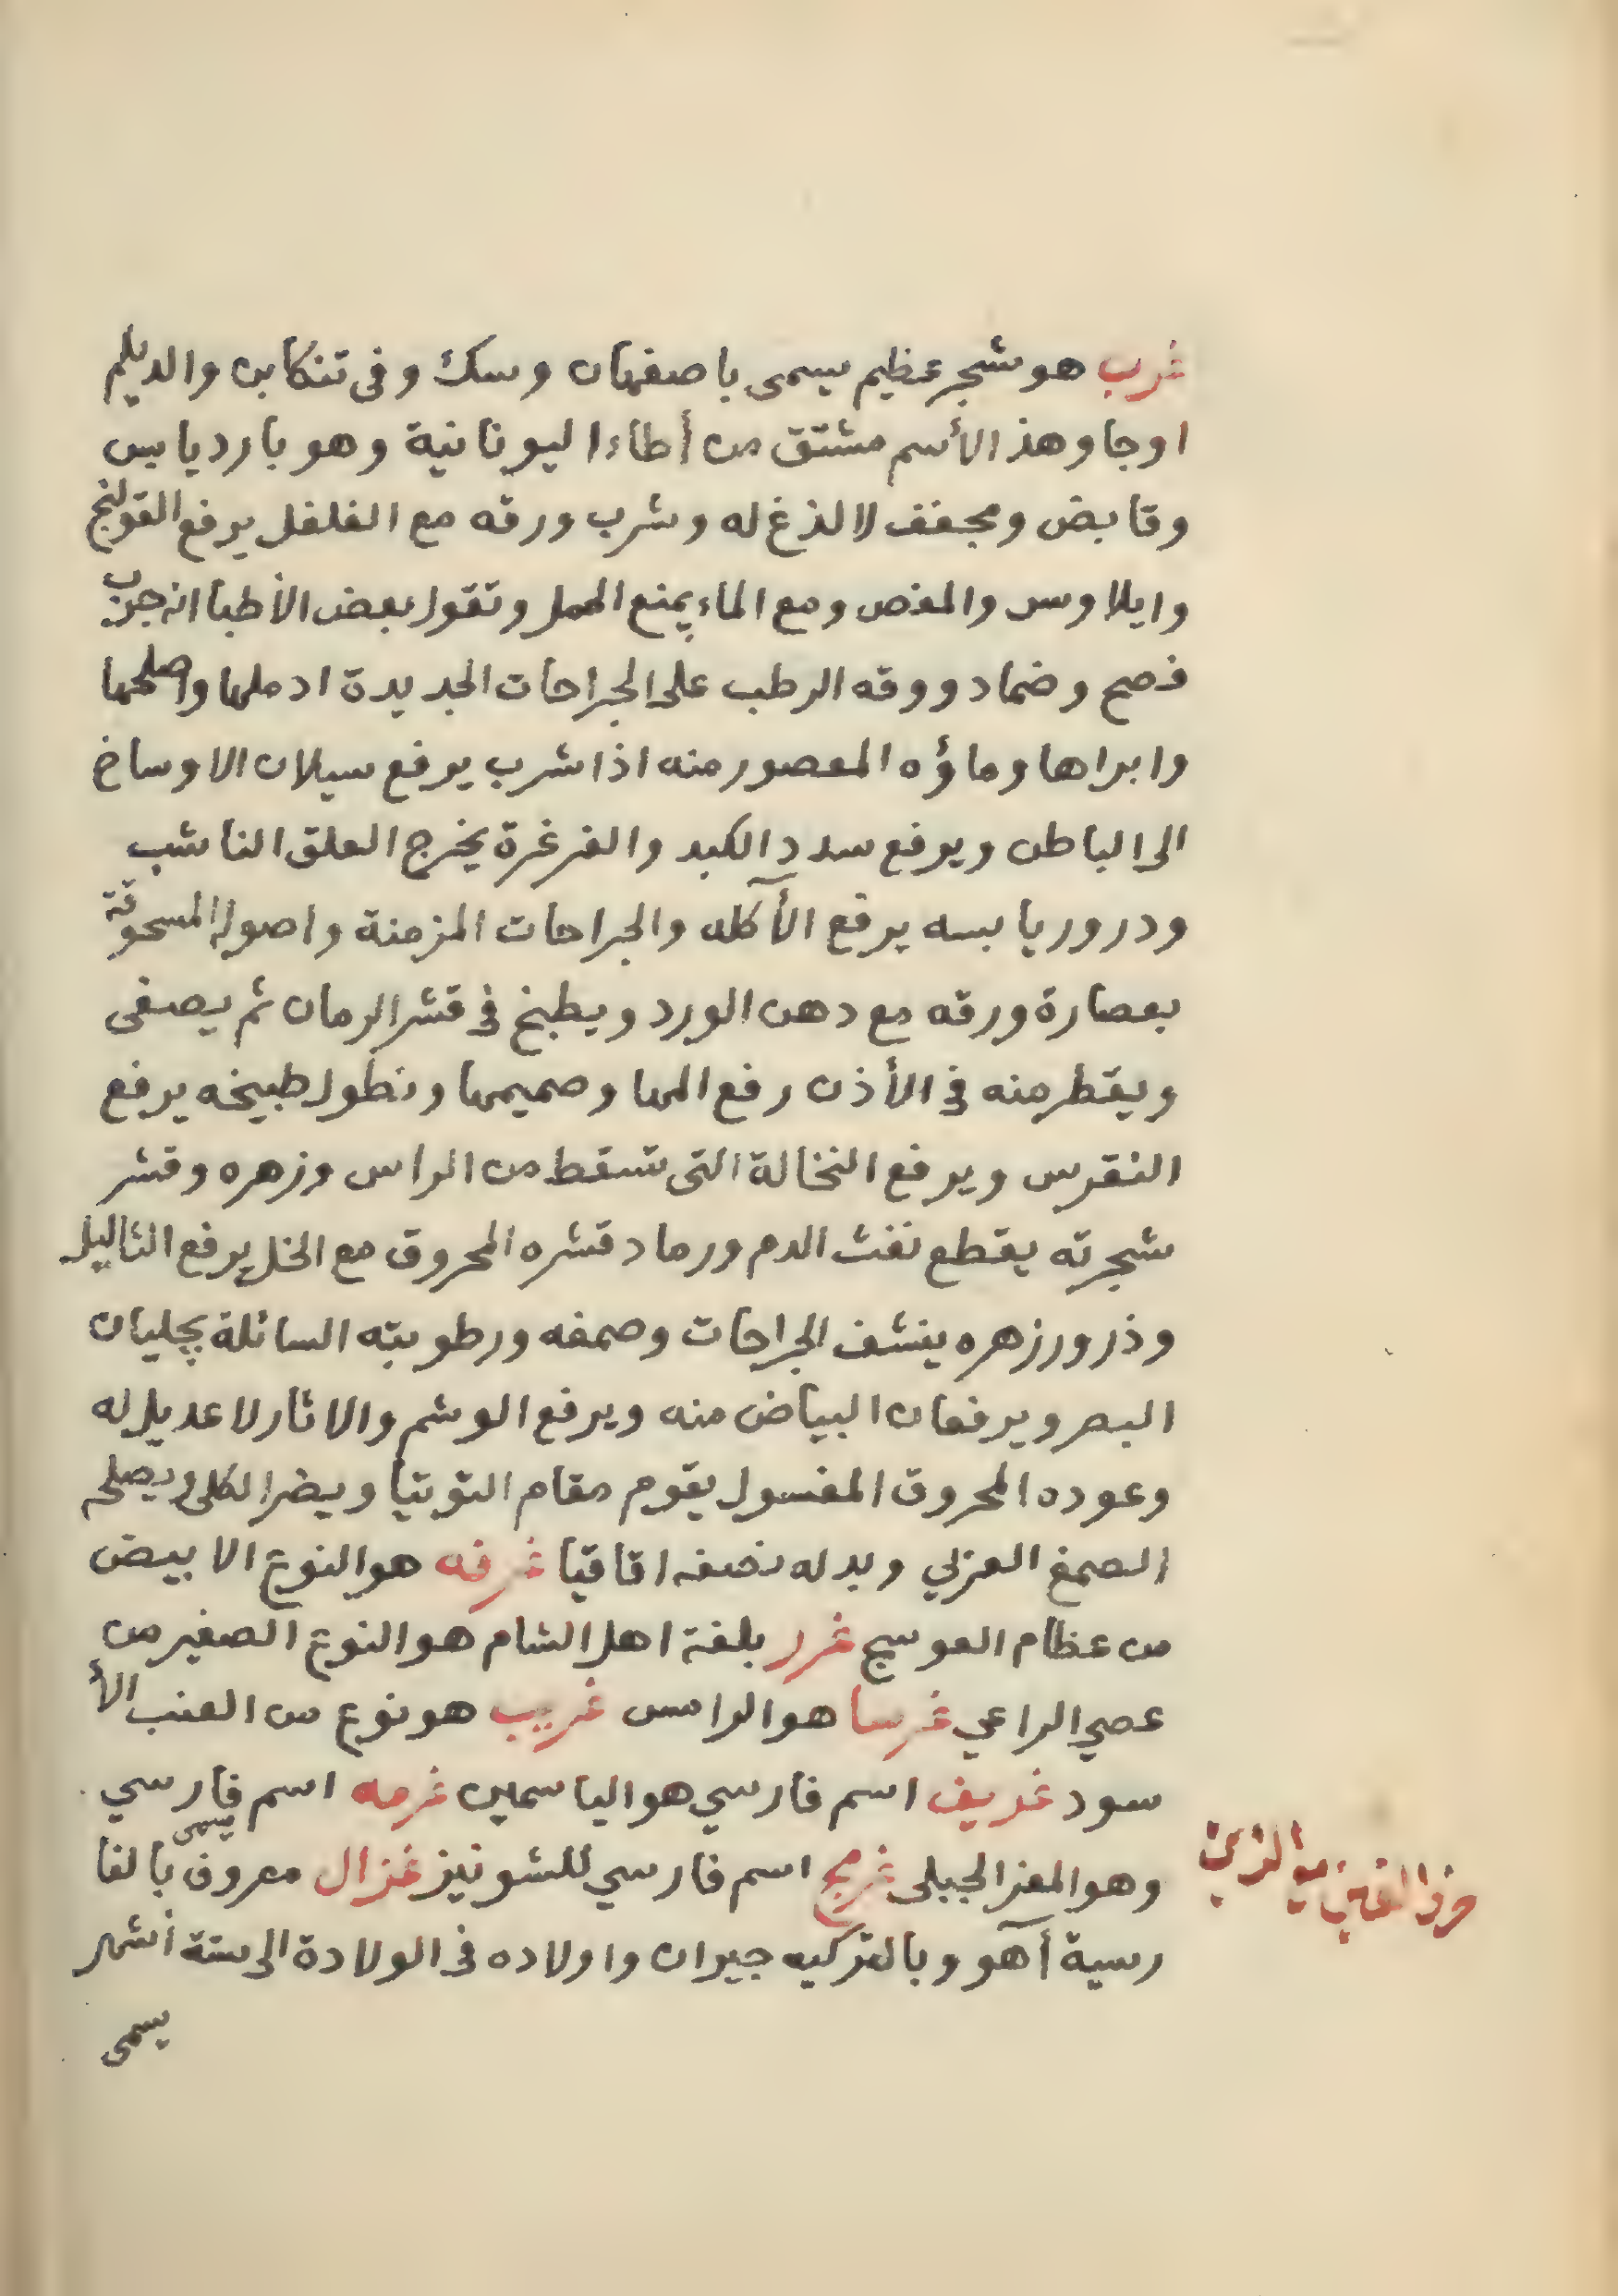 غرب هو شجر عظيم يسمى باصفهان وسك وفى تنكابن والديلم
اوجا وهذ الأسم مشتق من أطاءا ليونانية وهو بارد يابس
وقابض ومجفف لا لذغ له وشرب ورقه مع الفلفل يرفع القولنج
وايلاوس والمغص ومع الماء يمنع الحمل وتقول بعض الأطبا انه جرب
فصح وضماد ووقه الرطب على الجراحات الجديدة ادملها واصلحها
وابراها وماؤه المعصور منه اذا شرب يرفع سيلان الاوساخ
الى الباطن ويرفع سدد الكبد والغرغرة يخرج العلق الناشب
ودرور يابسه يرفع الأكله والجراحات المزمنة واصوله المسحوقة
بعصارة ورقه مع دهن الورد ويطبخ فى قشر الرمان ثم يصفى
ويقطر منه فى الأذن رفع المها وصميمها ونطول طبيخه يرفع
النقرس ويرفع النخالة التى تسقط من الراس وزهره وقشر
شجرته يقطع نفث الدم ورماد قشره المحروق مع الخل يرفع الثاليل
وذرور زهره ينشف الجراحات وصمغه ورطوبته السائلة يجليان
البصر ويرفعان البياض منه ويرفع الوشم والاثار لا عديل له
وعوده المحروق المغسول يقوم مقام التوتيا ويضر الكلى ويصلحه
الصمغ العربي وبدله نصفه اقاقيا غرفه هو النوع الابيض
من عظام العوسج غرر بلغة اهل الشام هو النوع الصغير من
عصي الراعي غرسا هو الراسن غريب هو نوع من العنب الأ
سود غريف اسم فارسي هو الياسمين غرمه اسم فارسي
وهو المعز الجبلى غريج اسم فارسي للشونيز غزال معروف يسمى بالفا
رسية آهو وبالتركيه جيران واولاده فى الولادة الى ستة أشهر
يسمى
حرف الغين مع الزين